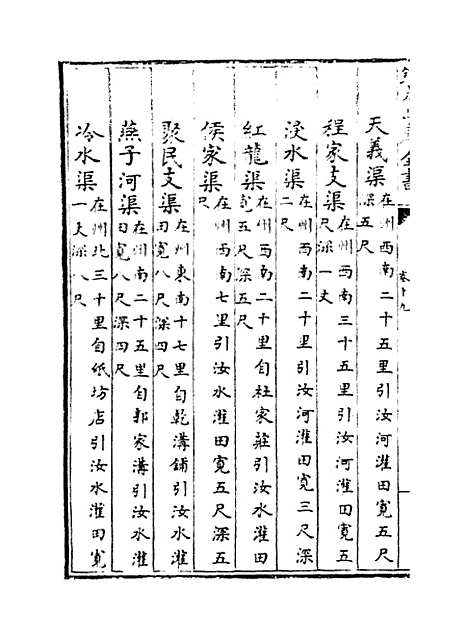 全書
卷十九
天義渠在州西南二十五里引汝河灌田寬五尺
深五尺
程家支渠在州西南三十五里引汝河灌田寬五
尺深一丈
浸水渠在州西南二十里引汝河灌田寬三尺深
二尺
紅龍渠在州西南二十里自杜家莊引汝水灌田
寬五尺深五尺
侯家渠在州西南七里引汝水灌田寬五尺深五
尺
聚民支渠在州東南十七里自乾溝鋪引汝水灌
田寬八尺深四尺
燕子河渠在州南二十五里自郭家溝引汝水灌
田寬八尺深四尺
冷水渠在州北三十里自紙坊店引汝水灌田寬
一丈深八尺